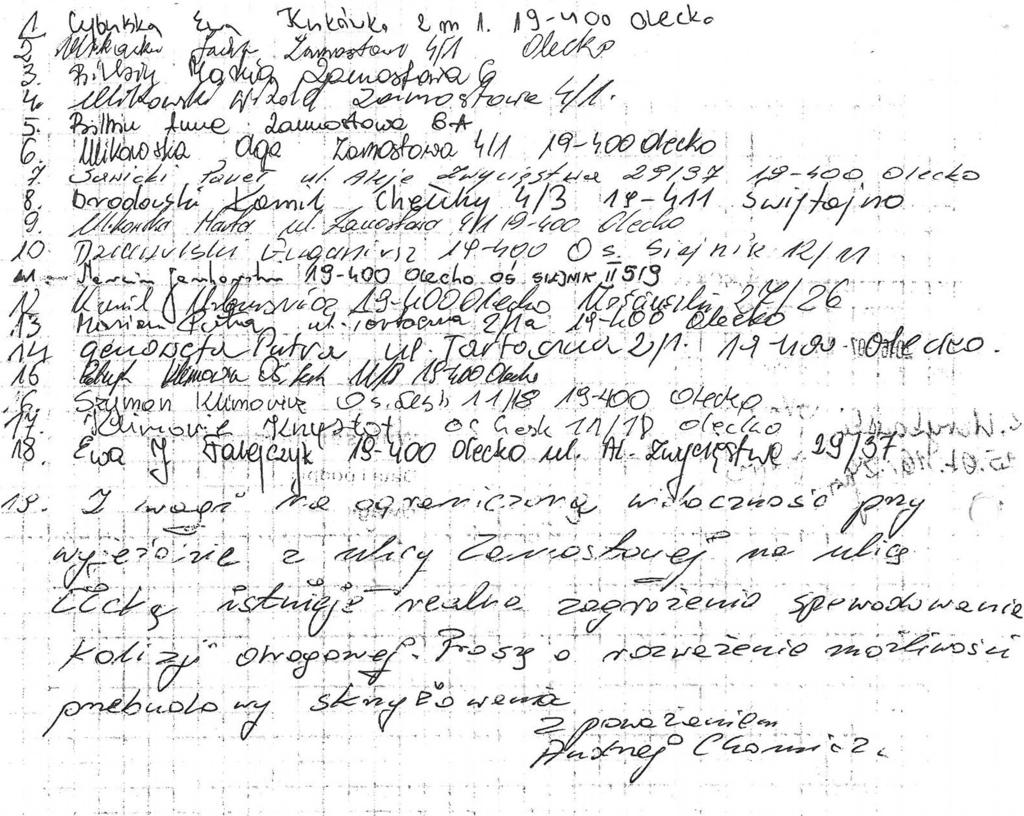 1. Cybulska Ewa Kukówko 2 m 1. 19-400 Olecko
2. Zamostowa 4/1 Olecko
3. Maria Zamostowa 6
4. Milkowski Witold Zamostowa 4/1.
5. Anna Zamostowa 6A
6. Milkowska Aga Zamostowa 4/1 19-400 Olecko
7. Sawicki Paweł ul. Aleje Zwycięstwa 29/37 19-400 Olecko
8. Drodowski Kamil Chełchy 4/3 19-411 Świętajno
9. Marta ul. Zamostowa 4/1 19-400 Olecko
10 19-400 Os. Siejnik 12/11
11 - Marcin 19-400 Olecko oś SIEJNIK II 5/9
12 Kamil 19-400 Olecko Kościuszki 27/26
13 Marian Putra ul. Tartaczna 2/1a 19-400 Olecko
14 Genowefa Putra ul. Tartaczna 2/1. 19-400 Olecko.
15 Klimowicz Oś Lesk 11/18 19-400 Olecko
16 Szymon Klimowicz Os. Lesk 11/18 19-400 Olecko
17. Klimowicz Krzysztof oś Lesk 11/18 Olecko
18. Ewa J Fabejczyk 19-400 Olecko ul. Al. Zwycięstwa 29/37
19. Z uwagi na ograniczoną widoczność przy
wyjeździe z ulicy Zamostowej na ulicę
Ełcką istnieje realne zagrożenie spowodowania
kolizji drogowej. Proszę o rozważenie możliwości
przebudowy skrzyżowania
z poważaniem
Andrzej